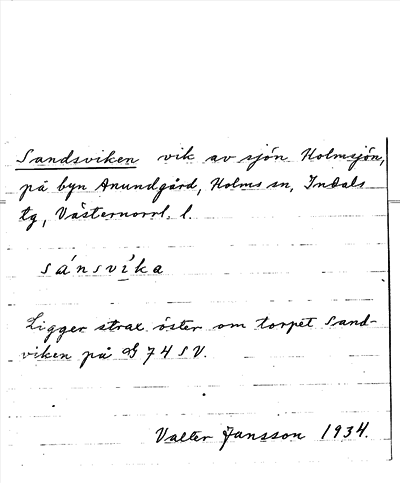 Sandsviken vik av sjön Holmsjön,
på byn Anundgård, Holms sn, Indals
tg, Västernorrl. l.
sánsvíka
Ligger strax öster om torpet Sand-
viken på G 74 SV.
Valter Jansson 1934.